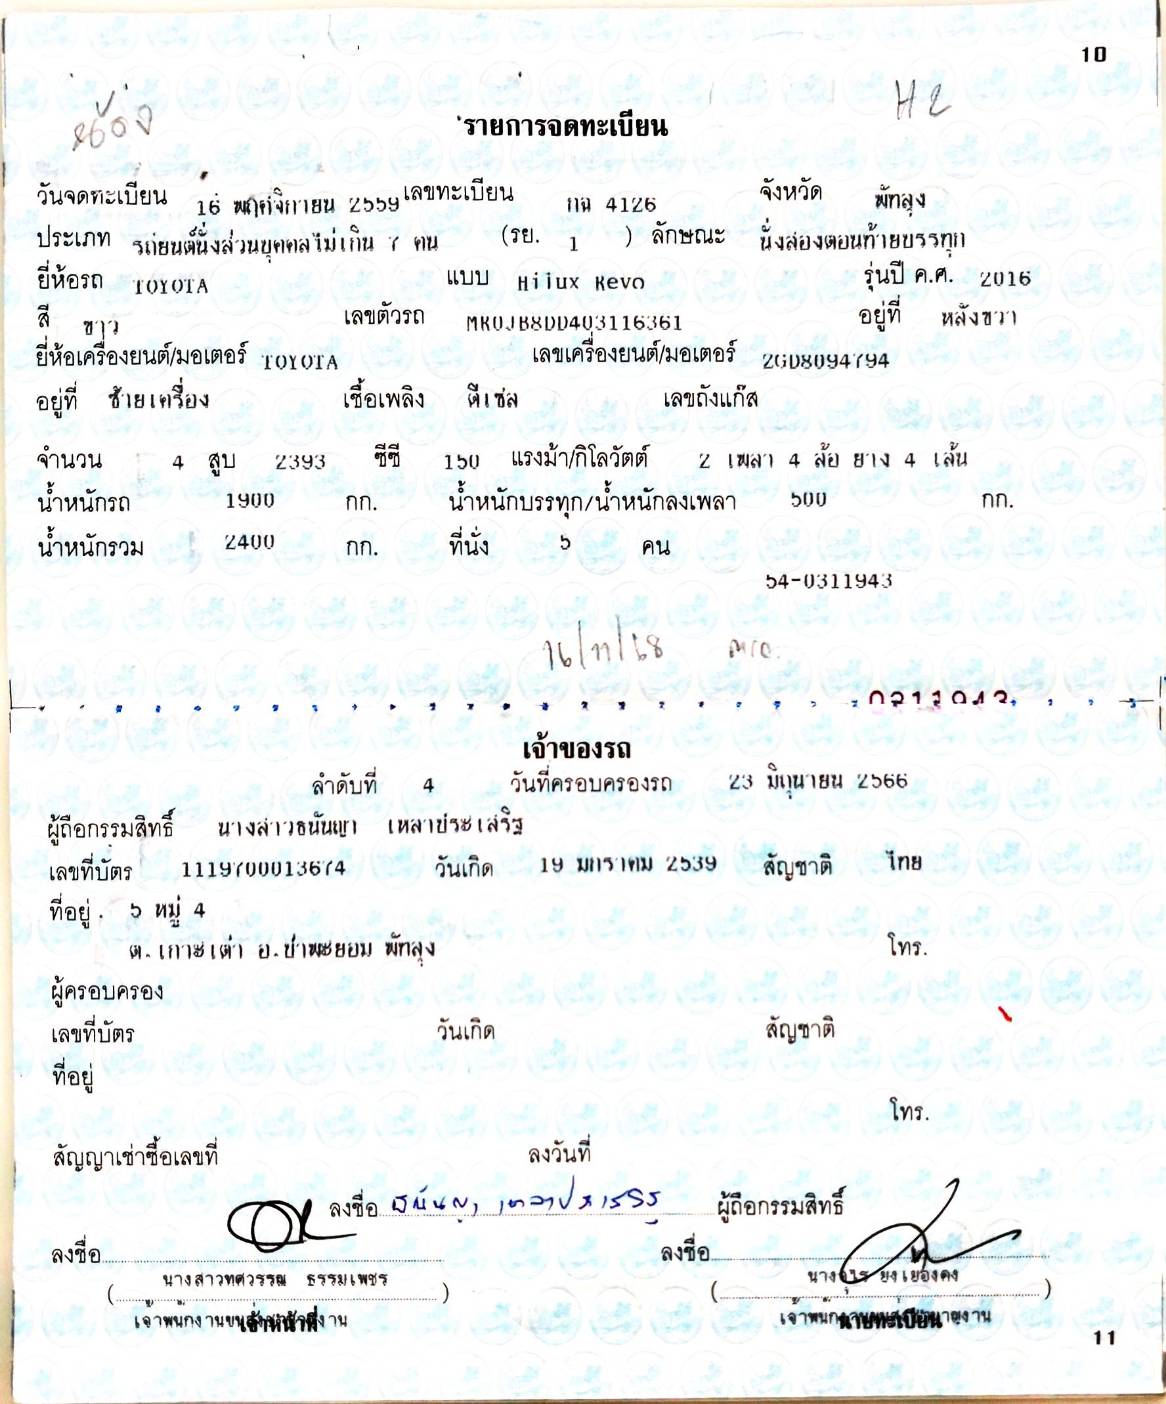 10
H2
รายการจดทะเบียน
วันจดทะเบียน 16 พฤศจิกายน 2559 เลขทะเบียน กฉ 4126 จังหวัด พัทลุง
ประเภท รถยนต์นั่งส่วนบุคคลไม่เกิน 7 คน (รย. 1 ) ลักษณะ นั่งสองตอนท้ายบรรทุก
ยี่ห้อรถ TOYOTA แบบ Hilux Revo รุ่นปี ค.ศ. 2016
สี ขาว เลขตัวรถ MR0JB8DD403116361 อยู่ที่ หลังขวา
ยี่ห้อเครื่องยนต์/มอเตอร์ TOYOTA เลขเครื่องยนต์/มอเตอร์ 2GD8094794
อยู่ที่ ซ้ายเครื่อง เชื้อเพลิง ดีเซล เลขถังแก๊ส
จำนวน 4 สูบ 2393 ซีซี 150 แรงม้า/กิโลวัตต์ 2 เพลา 4 ล้อ ยาง 4 เส้น
น้ำหนักรถ 1900 กก. น้ำหนักบรรทุก/น้ำหนักลงเพลา 500 กก.
น้ำหนักรวม 2400 กก. ที่นั่ง 5 คน
54-0311943
16/11/68
0311943
เจ้าของรถ
ลำดับที่ 4 วันที่ครอบครองรถ 23 มิถุนายน 2566
ผู้ถือกรรมสิทธิ์ นางสาวธนันญา เหลาประเสริฐ
เลขที่บัตร 1119700013674 วันเกิด 19 มกราคม 2539 สัญชาติ ไทย
ที่อยู่ 5 หมู่ 4
ต.เกาะเต่า อ.ป่าพะยอม พัทลุง โทร.
ผู้ครอบครอง
เลขที่บัตร วันเกิด สัญชาติ
ที่อยู่
โทร.
สัญญาเช่าซื้อเลขที่ ลงวันที่
ลงชื่อ ธนันญา เหลาประเสริฐ ผู้ถือกรรมสิทธิ์
ลงชื่อ ลงชื่อ
(นางสาวทศวรรณ ธรรมเพชร) (นาง ยงเยื้องคง)
เจ้าพนักงานขนส่งชำนาญงาน เจ้าพนักงานขนส่งชำนาญงาน
เจ้าหน้าที่ นายทะเบียน
11